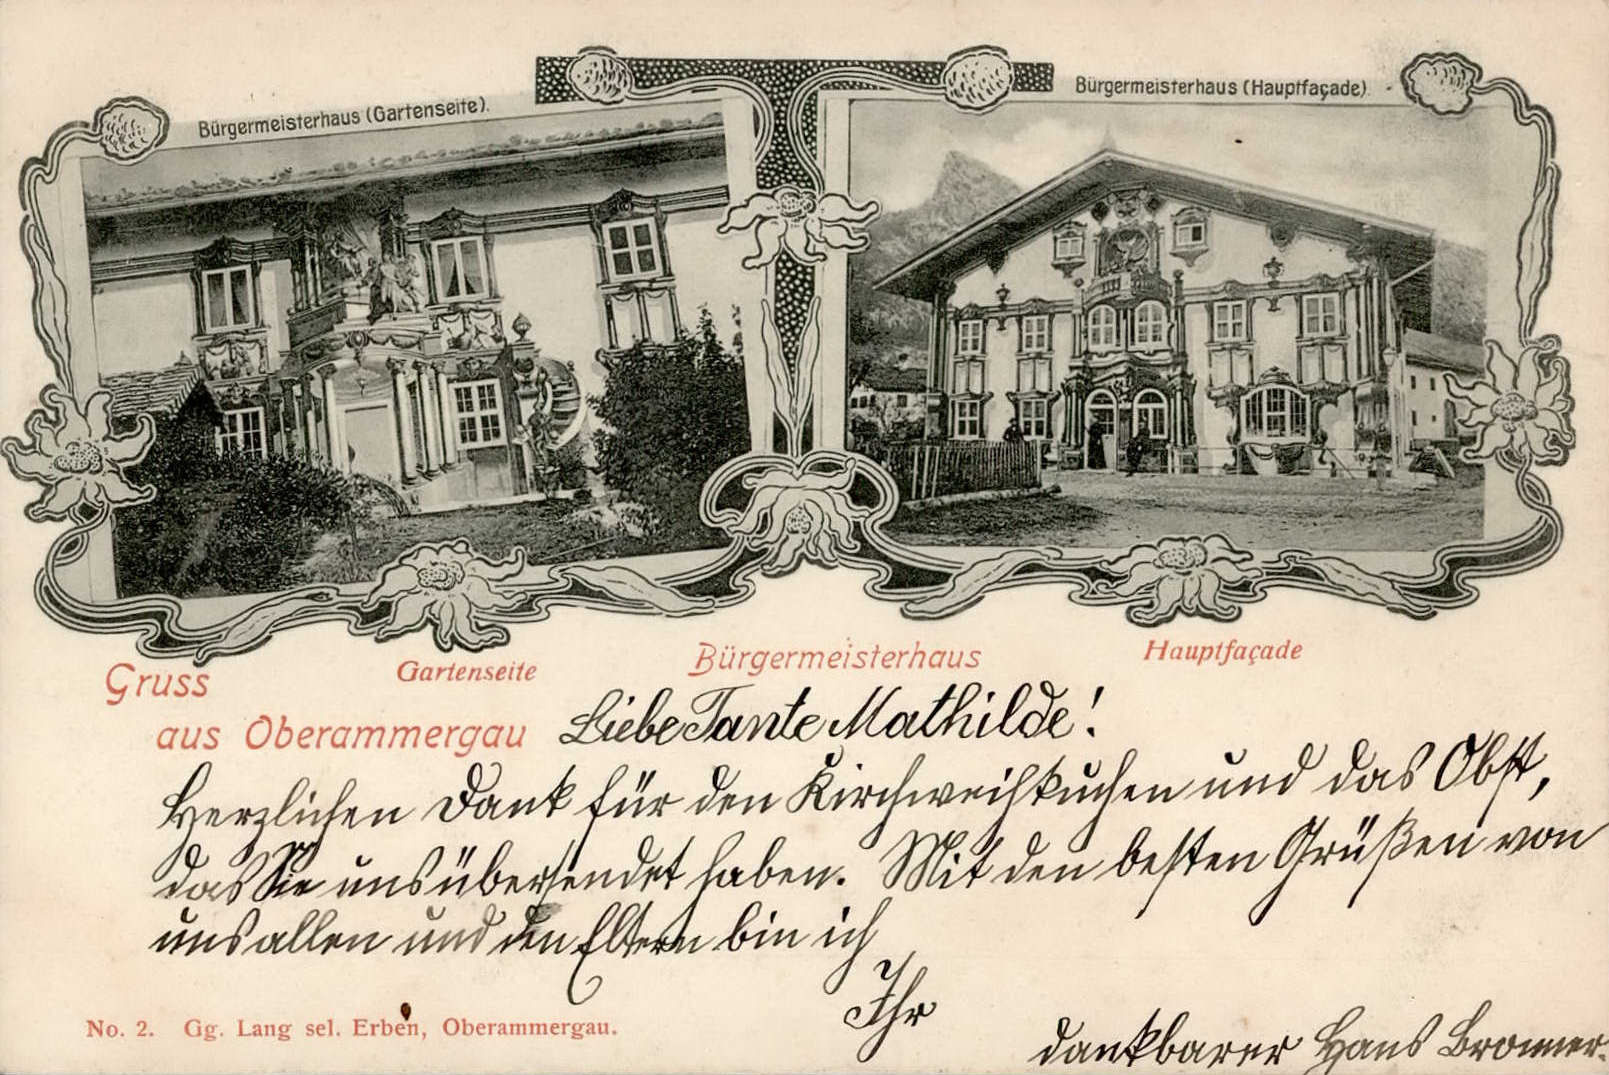 Bürgermeisterhaus (Gartenseite).
Bürgermeisterhaus (Hauptfaçade).
Gruss
aus Oberammergau
Gartenseite
Bürgermeisterhaus
Hauptfaçade
Liebe Tante Mathilde!
Herzlichen Dank für den Kirchweihkuchen und das Obst,
das Sie uns übersendet haben. Mit den besten Grüßen von
uns allen und den Eltern bin ich
Ihr
dankbarer Hans
No. 2. Gg. Lang sel. Erben, Oberammergau.